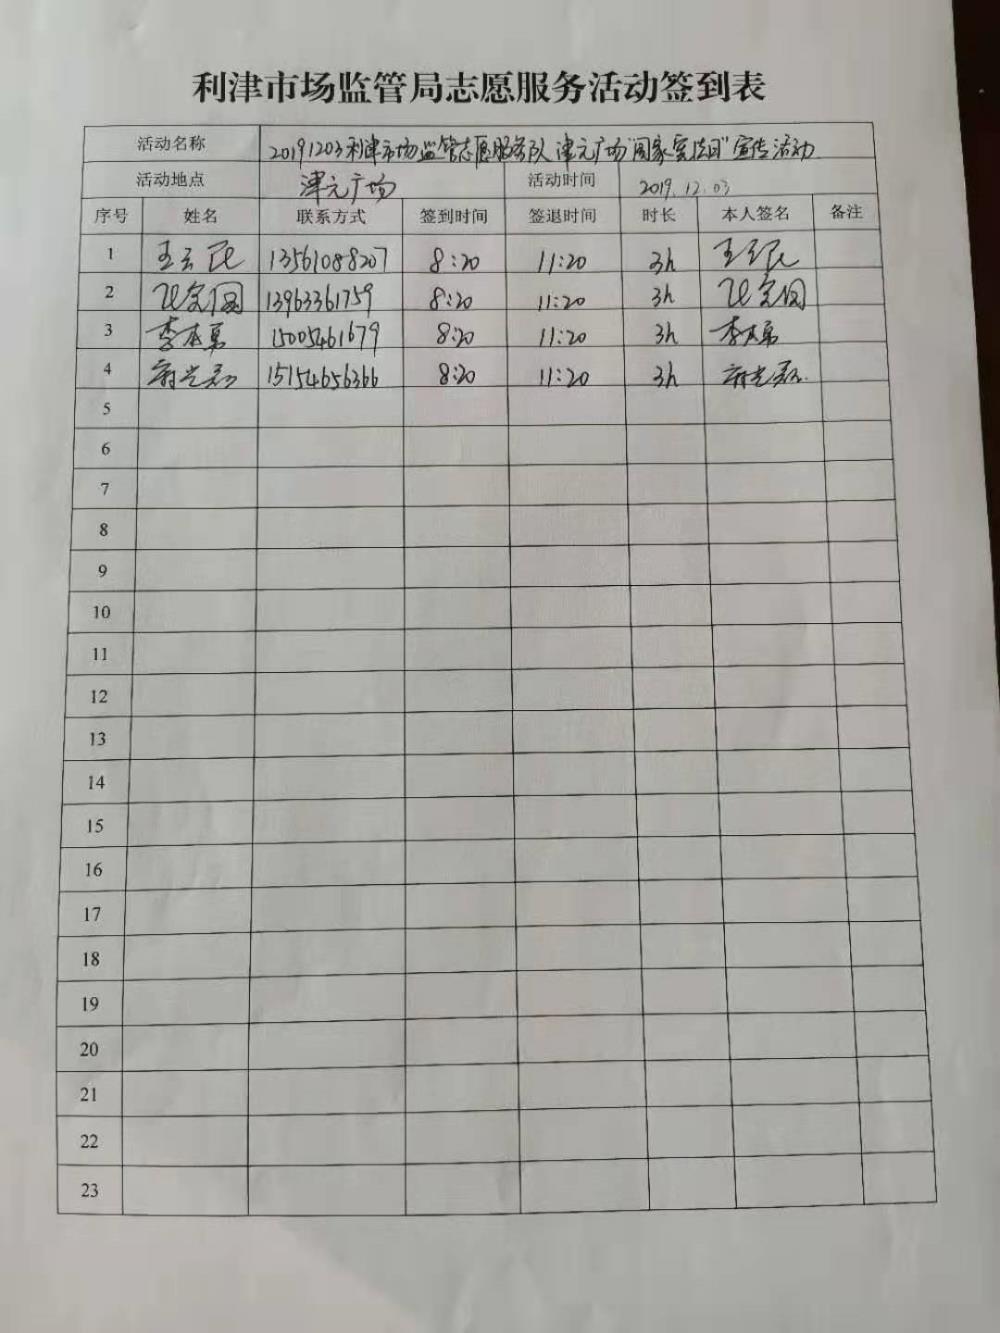 利津市场监管局志愿服务活动签到表
活动名称 20191203利津市场监管志愿服务队 津元广场"国家宪法日"宣传活动
活动地点 津元广场 活动时间 2019.12.03
序号 姓名 联系方式 签到时间 签退时间 时长 本人签名 备注
1 王云民 13561088207 8:20 11:20 3h 王云民
2 13963361759 8:20 11:20 3h
3 李本勇 15005461679 8:20 11:20 3h 李本勇
4 15154656366 8:20 11:20 3h
5
6
7
8
9
10
11
12
13
14
15
16
17
18
19
20
21
22
23